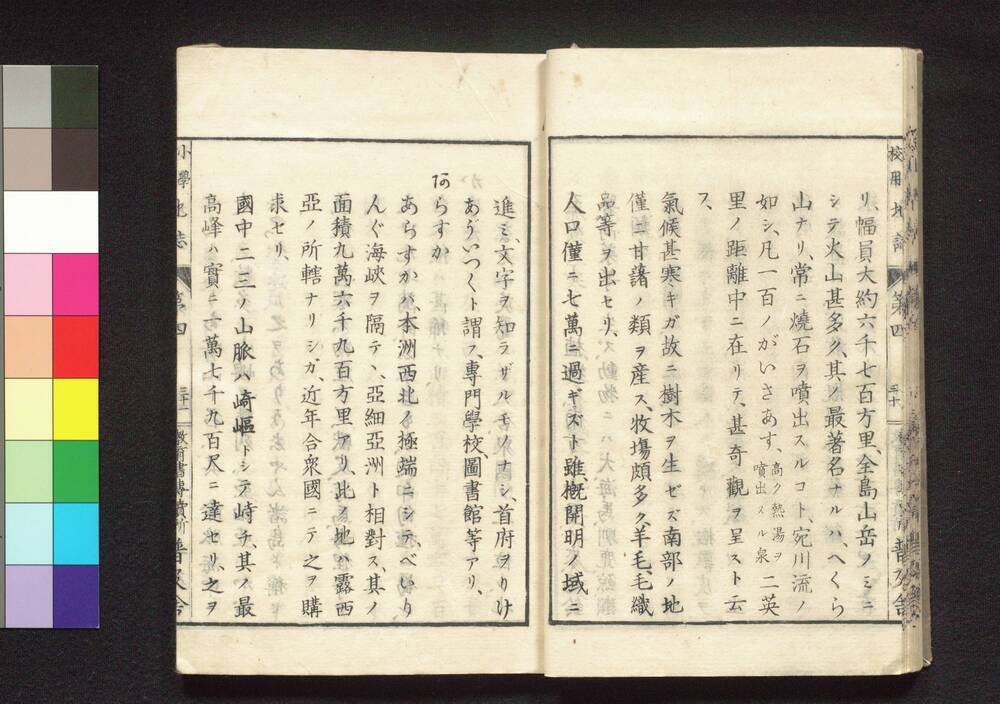 リ、幅員大約六千七百方里、全島山岳ノミニ
シテ火山甚多ク、其ノ最著名ナルハ、へくら
山ナリ、常ニ燒石ヲ噴出スルコト、宛川流ノ
如シ、凡一百ノがいさあす、高ク熱湯ヲ噴出スル泉二英
里ノ距離中ニ在リテ、甚奇觀ヲ呈スト云
フ、
氣候甚寒キガ故ニ樹木ヲ生ゼズ南部ノ地
僅ニ甘藷ノ類ヲ産ス、牧塲頗多ク、羊毛、毛織
品等ヲ出セリ、
人口僅ニ七萬ニ過ギズト雖、概開明ノ域ニ
校用地誌 第四 三十 普及舍
進ミ、文字ヲ知ラザルモノナシ、首府ヲりけ
あういつくト謂フ、專門學校、圖書館等アリ、
阿らすか
あらすかハ、本洲西北ノ極端ニシテべいり
んぐ海峽ヲ隔テ、亞細亞洲ト相對ス、其ノ
面積九萬六千九百方里アリ、此ノ地ハ露西
亞ノ所轄ナリシガ、近年合衆國ニテ之ヲ購
求セリ、
國中二三ノ山脈ハ崎嶇トシテ峙チ、其ノ最
高峰ハ實ニ壹萬七千九百尺ニ達セリ、之ヲ
小學地誌 第四 三十一 教育書專賣所 普及舍